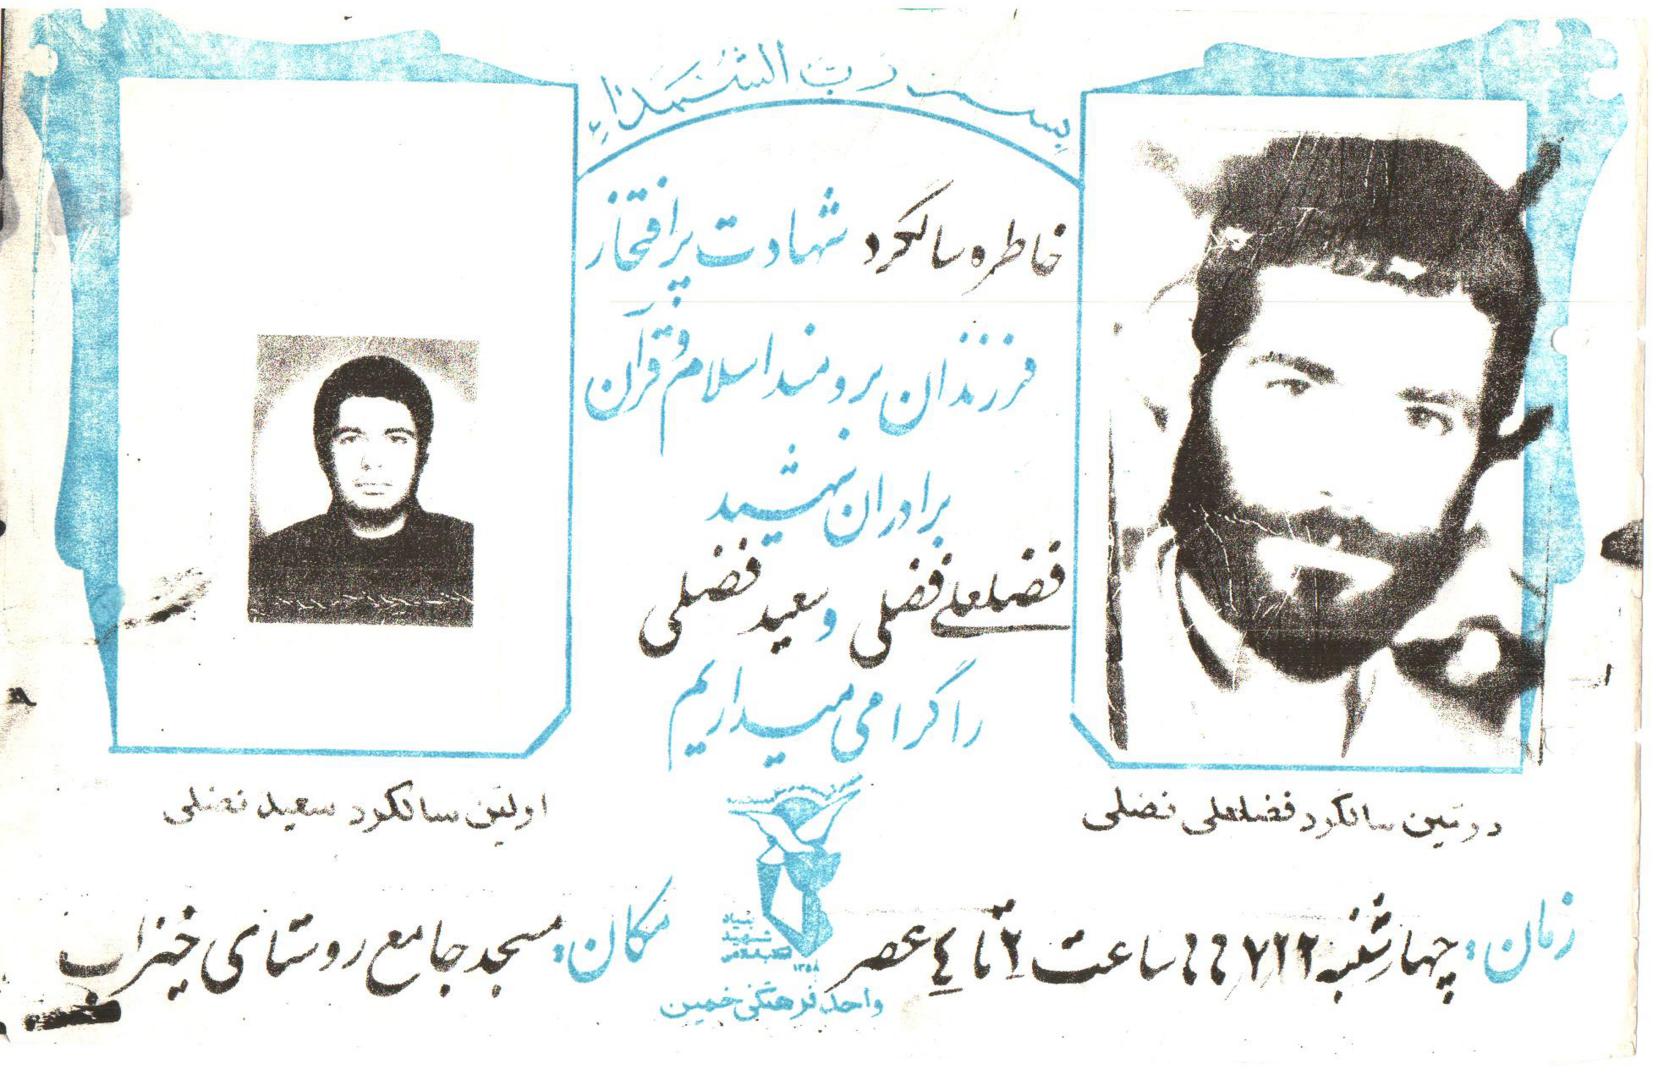 بسم رب الشهداء
خاطره سالگرد شهادت پرافتخار
فرزندان برومند اسلام و قرآن
برادران شهید
فضلعلی فضلی و سعید فضلی
را گرامی میداریم
دومین سالگرد فضلعلی فضلی
اولین سالگرد سعید فضلی
زمان: چهارشنبه ساعت ۲ تا ٤ عصر
مکان: مسجد جامع روستای خیزاب
بنیاد
شهید
انقلاب اسلامی
۱۳۵۸
واحد فرهنگی خمین